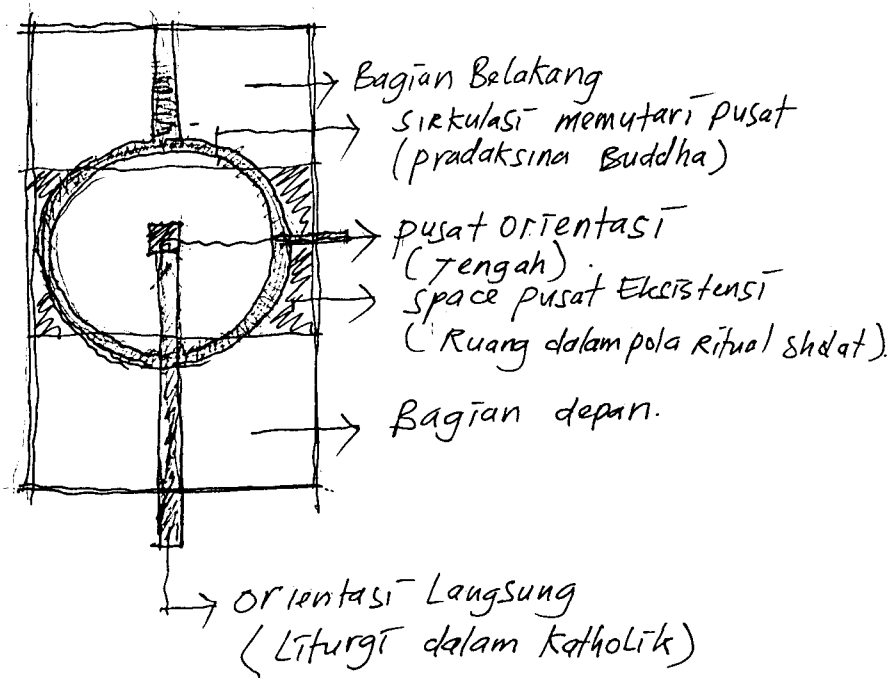 Bagian Belakang
sirkulasi memutari pusat
(pradaksina Buddha)
pusat orientasi
(Tengah).
space pusat Eksistensi
(Ruang dalam pola Ritual sholat).
Bagian depan.
orientasi Langsung
(Liturgi dalam Katholik)